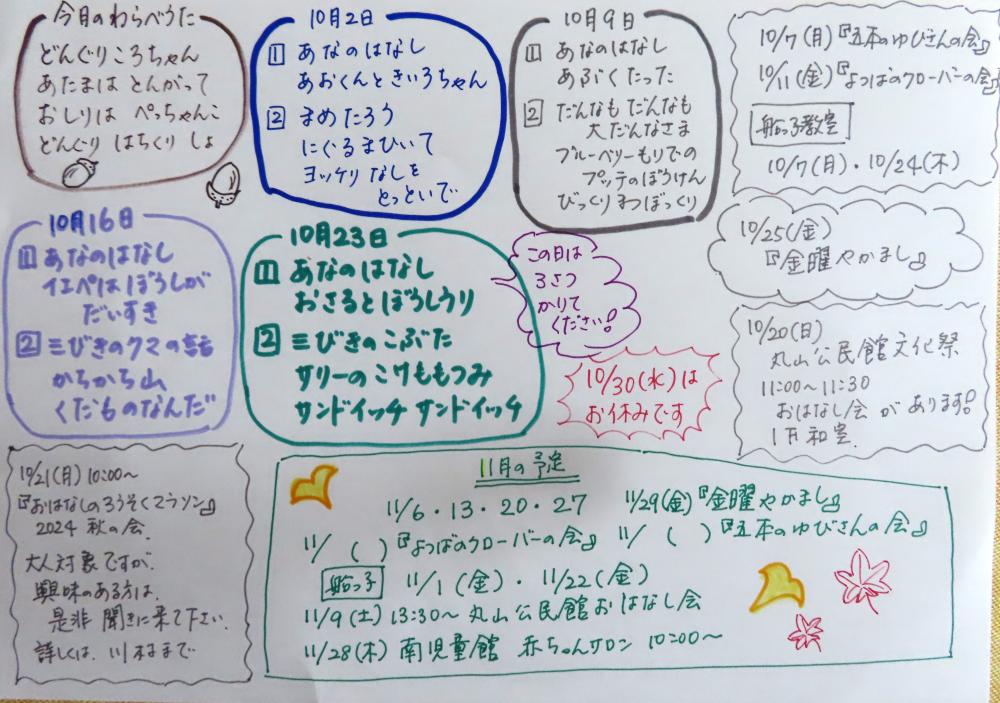 今月のわらべうた
どんぐりころちゃん
あたまは とんがって
おしりは ぺっちゃんこ
どんぐり はちくり しょ
10月2日
1 あなのはなし
あおくんときいろちゃん
2 まめたろう
にぐるまひいて
ヨッケリ なしを
とっといで
10月9日
1 あなのはなし
あぶくたった
2 だんなも だんなも
大だんなさま
ブルーベリーもりでの
プッテのぼうけん
びっくりまつぼっくり
10/7(月)『五本のゆびさんの会』
10/11(金)『よつばのクローバーの会』
船っ子教室
10/7(月)・10/24(木)
10/25(金)
『金曜やかまし』
10月16日
1 あなのはなし
イエペはぼうしが
だいすき
2 三びきのクマの話
かちかち山
くだものなんだ
10月23日
1 あなのはなし
おさるとぼうしうり
2 三びきのこぶた
サリーのこけももつみ
サンドイッチ サンドイッチ
この日は
ろうそく
かりて
ください!
10/30(水)は
お休みです
10/20(日)
丸山公民館文化祭
11:00〜11:30
おはなし会 があります!
1F 和室
10/21(月) 10:00〜
『おはなしのろうそくマラソン』
2024 秋の会
大人対象ですが、
興味のある方は、
是非 聞きに来て下さい。
詳しくは、川村まで
11月の予定
11/6・13・20・27 11/29(金)『金曜やかまし』
11/ ( )『よつばのクローバーの会』 11/ ( )『五本のゆびさんの会』
船っ子 11/1(金)・11/22(金)
11/9(土) 13:30〜 丸山公民館おはなし会
11/28(木) 南児童館 赤ちゃんサロン 10:00〜